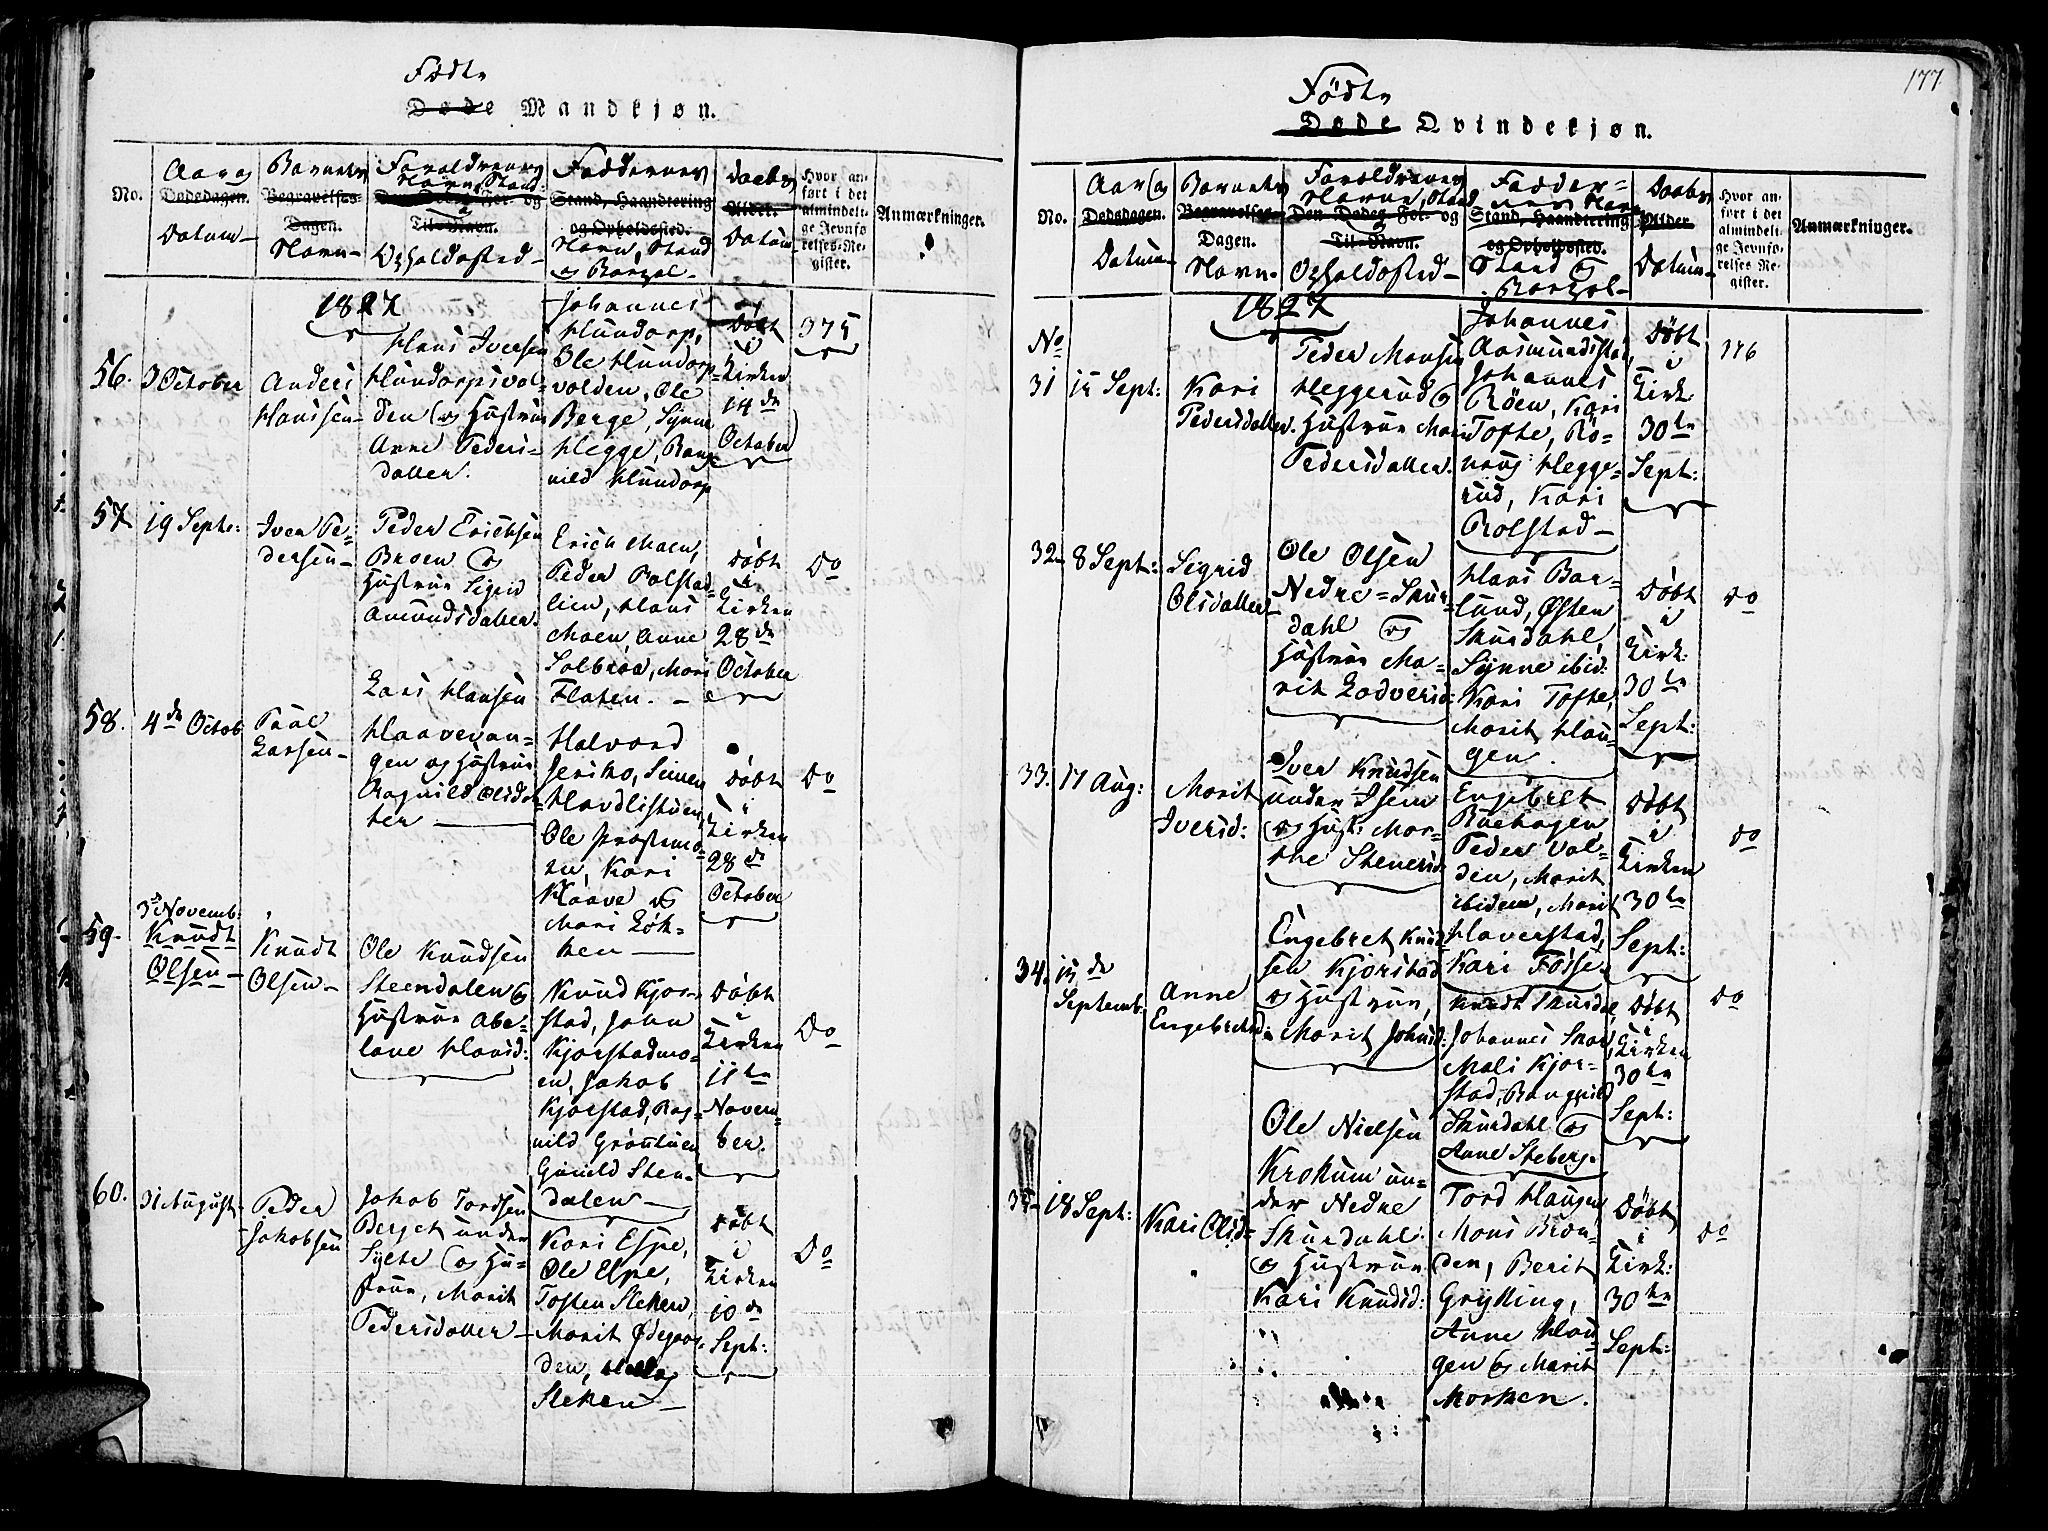 Fødte
Døde Mandkjøn.
No.
Aar og
Dødsdagen.
Datum
Barnets
Begravelses-
Dagen.
Navn
Forældrenes
Navn, Stand
og
Til-Navn.
Opholdssted
Faddernes
Stand, Haandtering
og Opholdssted.
Navn, Stand
og Bopæl
Daabs
Alder.
Datum
Hvor an-
ført i det
almindeli-
ge Jevnfø-
relses-Re-
gister.
Anmærkninger.
1827
56.
3 October
Anders
Hanssen
Hans Iversen
Hundorpsvol-
den og Hustrue
Anne Peders-
datter.
Johannes
Hundorp,
Ole Hundorp-
volden, Ole
Berge, Synne
Hegge, Rang-
nild Hundorp
Døbt
i
Kirken
14de
October
375
57
19 Septr:
Iver Pe-
dersen
Peder Erichsen
Broen og
Hustrue Sigrid
Amundsdatter.
Erich Moen,
Peder Rolstad-
lien, Hans
Moen, Anne
Solbraa, Mari
Flaten.
Døbt
i
Kirken
28de
October
Do
58.
4de Octob
Paul
Larsen
Lars Hansen
Haavevan-
gen og Hustrue
Ragnild Olsdat-
ter
Halvord
Jeriko, Simen
Hardlistuen,
Ole Prostmo-
en, Kari
Haave og
Mari Løk-
ken
Døbt
i
Kirken
28de
October
Do
59.
3de Novemb:
Knudt
Olsen
Knudt
Olsen
Ole Knudsen
Steendalen og
Hustrue Abe-
lone Hansd:
Knud Kjør-
stad, John
Kjørstadmo-
en, Jakob
Kjørstad, Rag-
nild Grøntuen
Gunild Sten-
dalen
Døbt
i
Kirken
11te
Novem-
ber.
Do
60.
31 August
Peder
Jakobsen
Jakob Tordsen
Berget under
Sylte og Hu-
strue, Marit
Pedersdatter
Kari Espe,
Ole Espe,
Tosten Steken,
Marit Ødegaar-
den,
Steken
Døbt
i
Kirken
10de
Sept:
Do
177
Fødte
Døde Qvindekjøn.
No.
Aar og
Dødsdagen.
Datum
Barnets
Begravelses-
Dagen.
Navn
Forældrenes
Navn, Stand
Den Dødes For- og
Til-Navn.
Opholdssted
Fadder-
nes Navn
Stand, Haandtering
og Opholdssted.
Stand og
Bopæl
Daabs
Alder
Datum
Hvor an-
ført i det
almindeli-
ge Jevnfø-
relses Re-
gister.
Anmærkninger.
1827
No
31
15 Sept:
Kari
Pedersdatter.
Peder Monsen
Heggerud og
Hustrue Mari
Pedersdatter.
Johannes
Aasmundstad,
Johannes
Røen, Kari
Tofte, Rø-
naug Hegge-
rud, Kari
Rolstad
Døbt
i
Kirk
30te
Sept:
376
32
8 Sept:
Sigrid
Olsdatter
Ole Olsen
Nedre-Skur-
dahl og
Hustrue Ma-
rit Lodversd:
Hans Bar-
lund, Østen
Skurdahl,
Synne ibid:
Kari Tofte,
Marit Hau-
gen.
Døbt
i
Kirk:
30te
Sept:
do
33.
17 Aug:
Marit
Iversd:
Iver Knudsen
under Isum
og Hust: Mar-
the Stenersd:
Engebret
Ruehagen
Peder Vol-
den, Marit
ibidem, Marit
Haverstad,
Kari Fosse.
Døbt
i
Kirken
30te
Sept:
do
34.
15de
Septemb.
Anne
Engebretsd:
Engebret Knud-
sen Kjørstad
og Hustrue,
Marit Johnsd:
Knudt Skurdal,
Johannes Skar
Mali Kjør-
stad, Rangnild
Skurdahl og
Anne Steberg.
Døbt
i
Kirken
30te
Sept:
do
35
18 Sept:
Kari Olsd:
Ole Nielsen
Krokum un-
der Nedre
Skurdahl
og Hustrue
Kari Knudsd:
Tord Haugen,
Mons Bræn-
den, Berit
Grytting,
Anne Hau-
gen og Marit
Morken.
Døbt
i
Kirk:
30te
Sept:
do